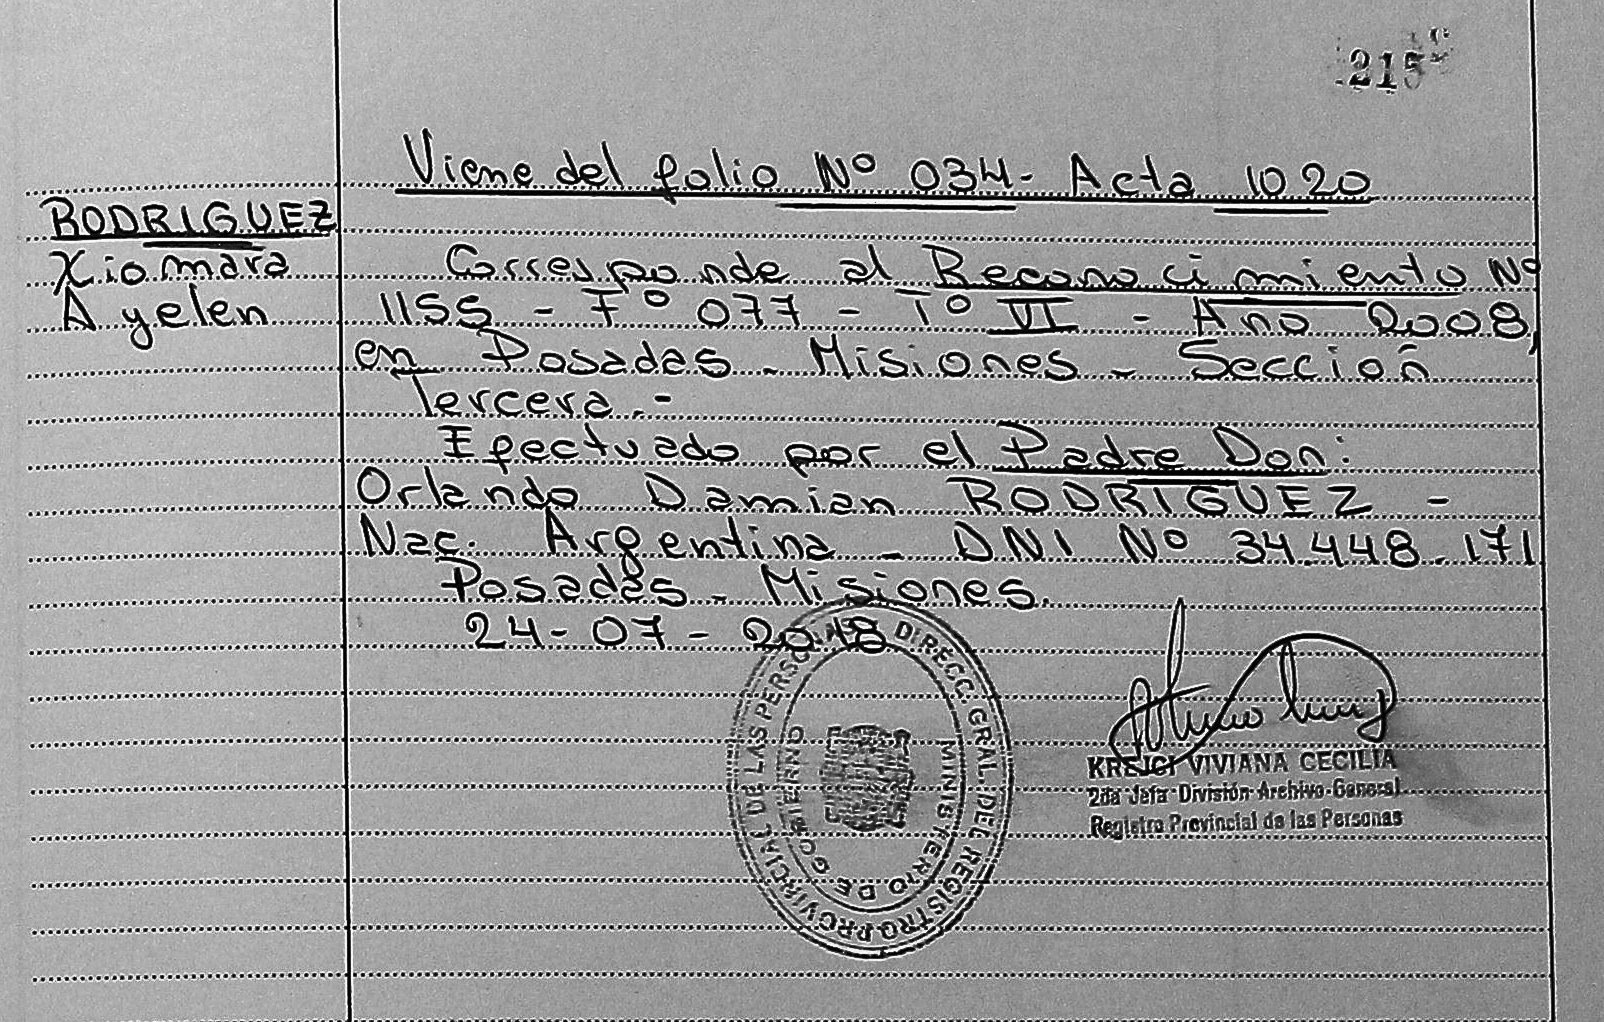 215
Viene del folio Nº 034 - Acta 1020
RODRIGUEZ
Xiomara
Ayelen
Corresponde al Reconocimiento Nº
1155 - Fº 077 - Tº VI - Año 2008,
en Posadas - Misiones - Sección
Tercera.-
Efectuado por el Padre Don:
Orlando Damian RODRIGUEZ -
Nac. Argentina - DNI Nº 34.448.171
Posadas - Misiones.
24-07-2018
DIRECC. GRAL. DEL REGISTRO PROVINCIAL DE LAS PERSONAS
MINISTERIO DE GOBIERNO
KREJCI VIVIANA CECILIA
2da Jefa División Archivo General
Registro Provincial de las Personas